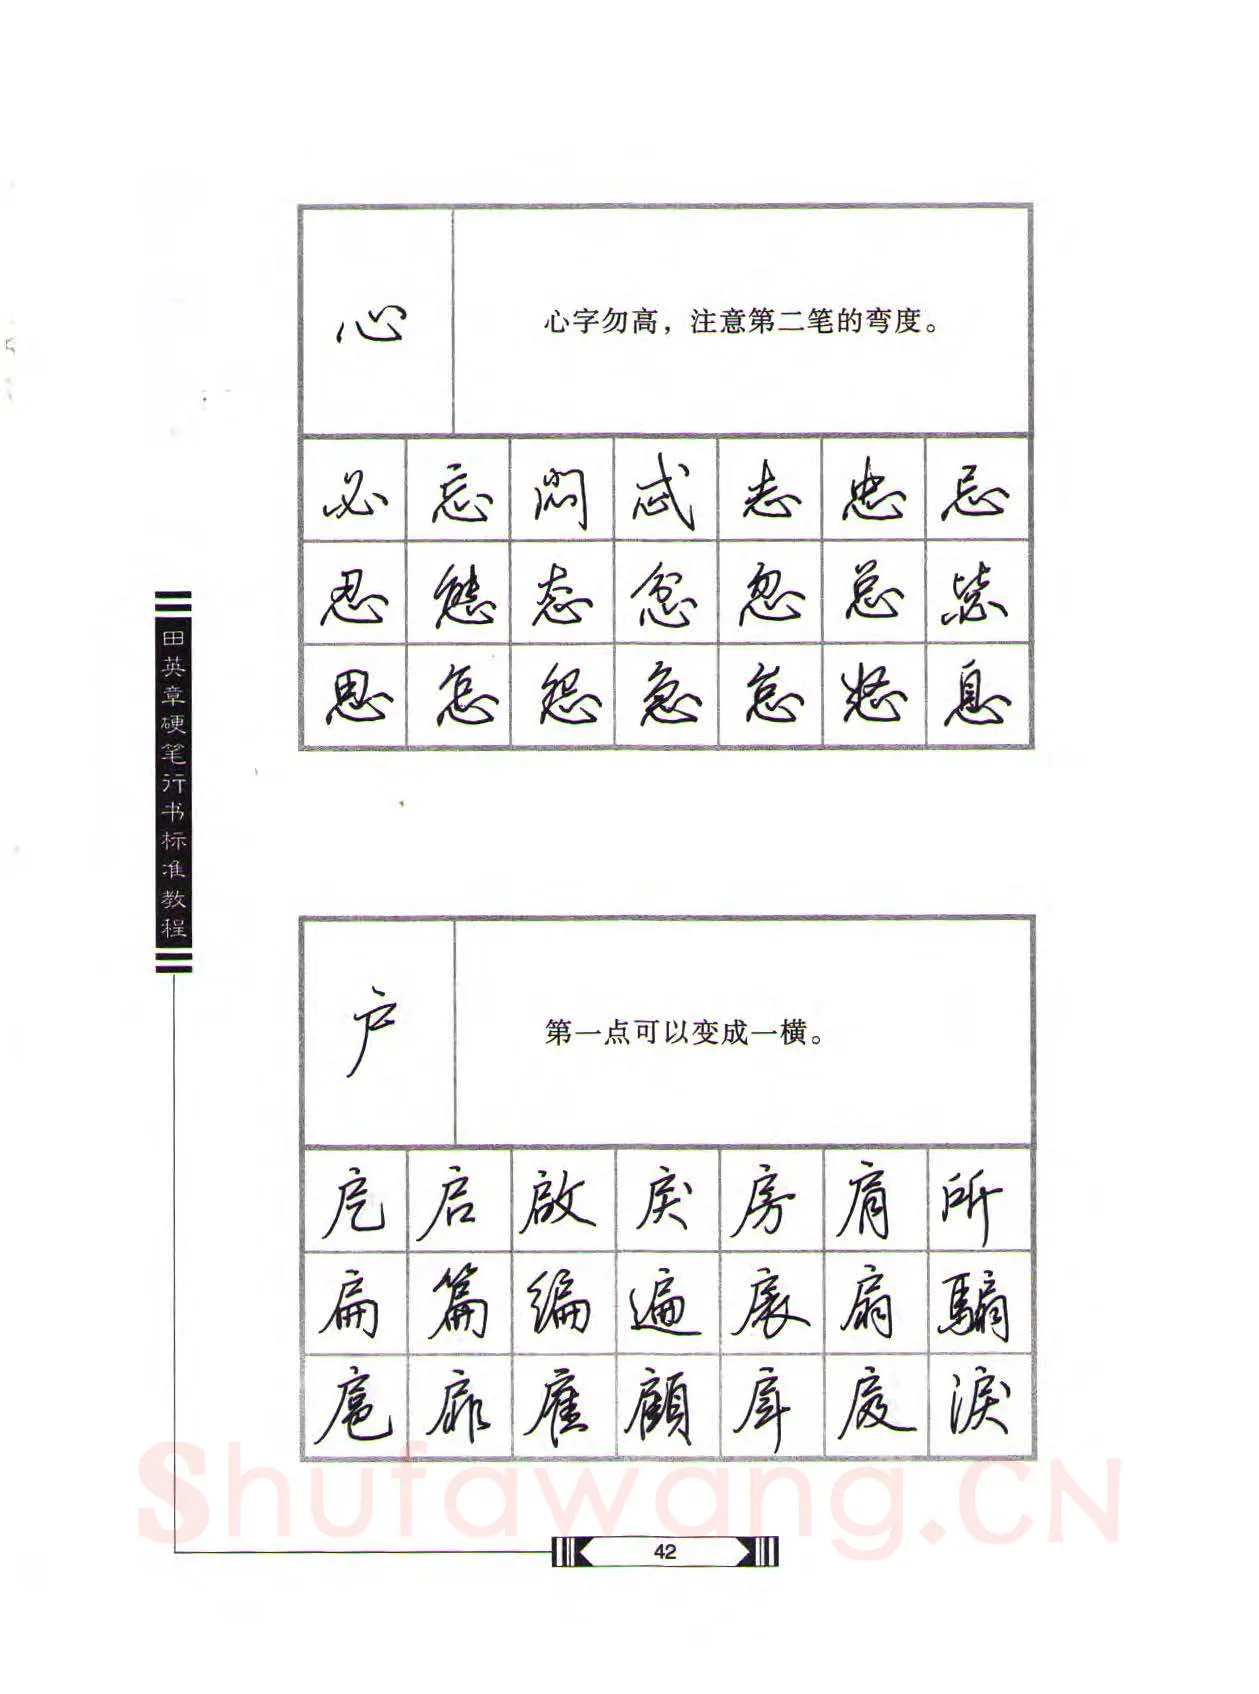 心
心字勿高，注意第二笔的弯度。
必 忘 悶 忒 志 忠 忌
忍 態 态 忿 忽 总 惢
思 怎 怨 急 怠 息
田英章硬笔行书标准教程
户
第一点可以变成一横。
戹 启 啟 戾 房 肩 所
扁 篇 编 遍 扆 扇 騸
扈 扉 雇 顧 淚
Shufawang.CN
42